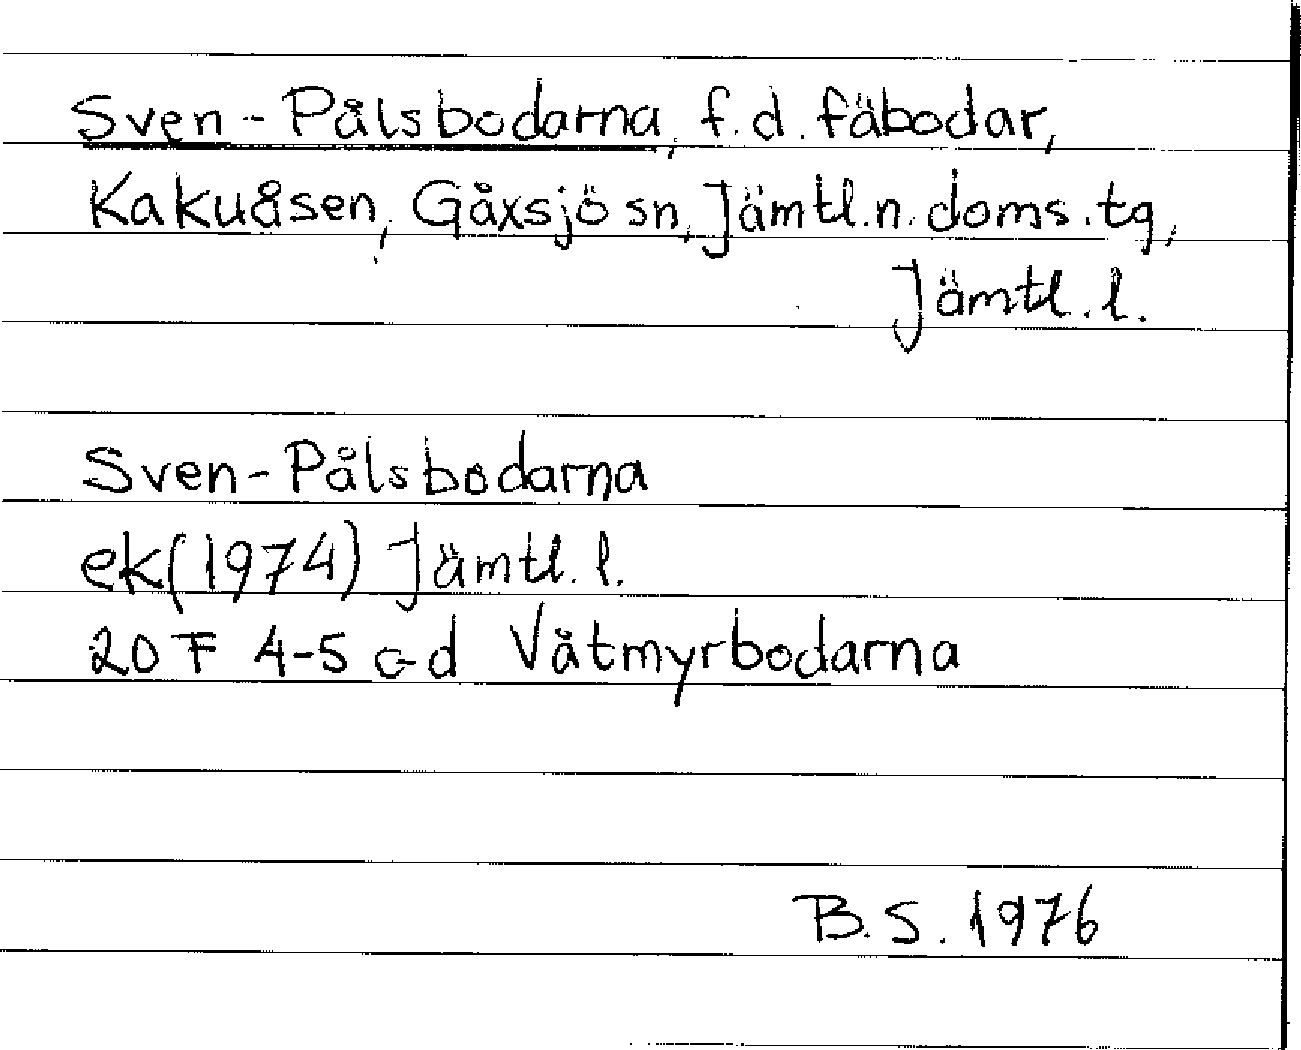 Sven-Pålsbodarna, f.d. fäbodar,
Kakuåsen, Gåxsjö sn, Jämtl.n.doms.tg,
Jämtl.l.
Sven-Pålsbodarna
ek(1974) Jämtl.l.
20F 4-5 c-d Våtmyrbodarna
B.S. 1976